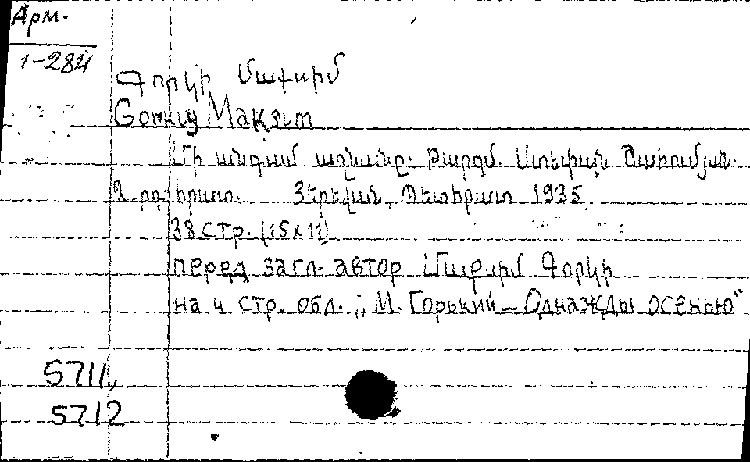 Арм.
1-284
Գորկի Մաքսիմ
Gorkiy Maksim
Մի անգամ աշնանը: Թարգմ. Ստեփան
հրատ. Յերևան, Պետհրատ 1935
38 стр. (15x11)
перед загл. автор Մաքսիմ Գորկի
на 4 стр. обл. „М. Горький — Однажды осенью"
5711,
5712